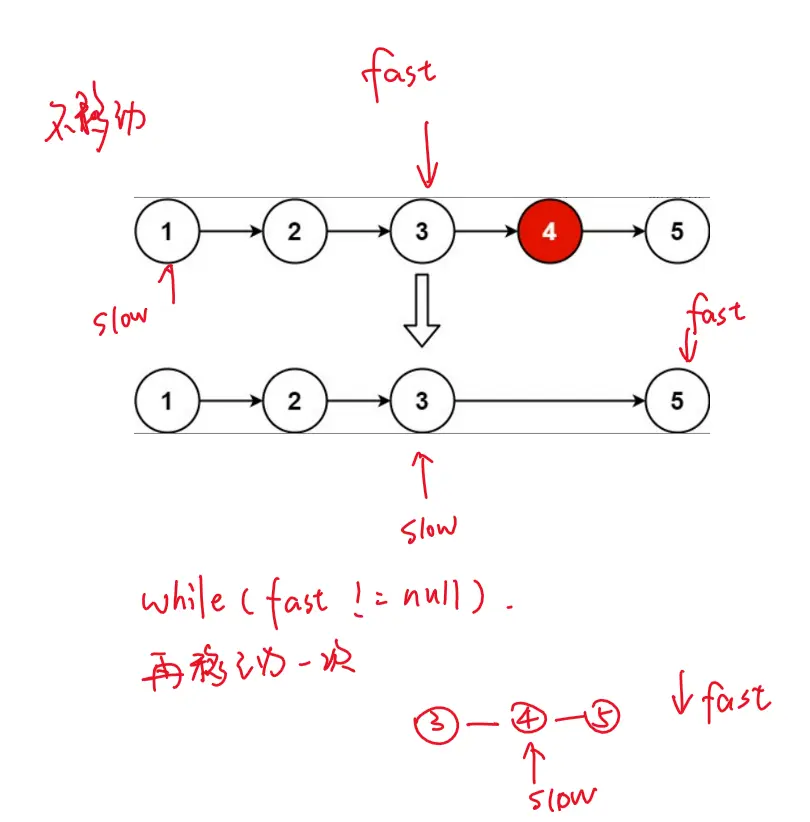 fast
不移动
1 2 3 4 5
slow
fast
1 2 3 5
slow
while(fast != null).
再移动一次
③ — ④ — ⑤
fast
slow